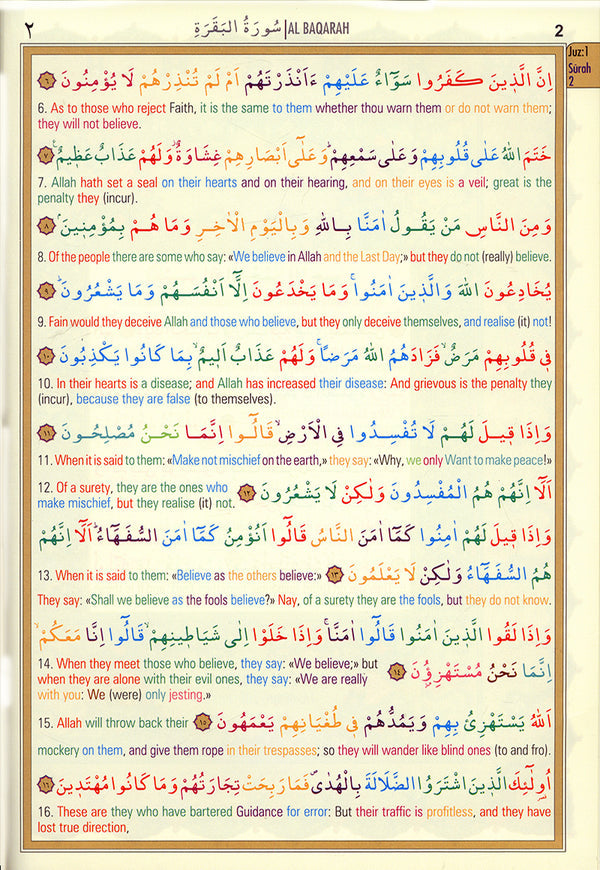 ٢ سُورَةُ الْبَقَرَةِ | AL BAQARAH 2
Juz:1
Sûrah
2
اِنَّ الَّذ۪ينَ كَفَرُوا سَوَٓاءٌ عَلَيْهِمْ ءَاَنْذَرْتَهُمْ اَمْ لَمْ تُنْذِرْهُمْ لَا يُؤْمِنُونَ ﴿٦﴾
6. As to those who reject Faith, it is the same to them whether thou warn them or do not warn them;
they will not believe.
خَتَمَ اللّٰهُ عَلٰى قُلُوبِهِمْ وَعَلٰى سَمْعِهِمْۜ وَعَلٰٓى اَبْصَارِهِمْ غِشَاوَةٌۘ وَلَهُمْ عَذَابٌ عَظ۪يمٌ۟ ﴿٧﴾
7. Allah hath set a seal on their hearts and on their hearing, and on their eyes is a veil; great is the
penalty they (incur).
وَمِنَ النَّاسِ مَنْ يَقُولُ اٰمَنَّا بِاللّٰهِ وَبِالْيَوْمِ الْاٰخِرِ وَمَا هُمْ بِمُؤْمِن۪ينَۢ ﴿٨﴾
8. Of the people there are some who say: «We believe in Allah and the Last Day;» but they do not (really) believe.
يُخَادِعُونَ اللّٰهَ وَالَّذ۪ينَ اٰمَنُواۚ وَمَا يَخْدَعُونَ اِلَّٓا اَنْفُسَهُمْ وَمَا يَشْعُرُونَۜ ﴿٩﴾
9. Fain would they deceive Allah and those who believe, but they only deceive themselves, and realise (it) not!
ف۪ي قُلُوبِهِمْ مَرَضٌۙ فَزَادَهُمُ اللّٰهُ مَرَضًاۚ وَلَهُمْ عَذَابٌ اَل۪يمٌۙ بِمَا كَانُوا يَكْذِبُونَ ﴿١٠﴾
10. In their hearts is a disease; and Allah has increased their disease: And grievous is the penalty they
(incur), because they are false (to themselves).
وَاِذَا ق۪يلَ لَهُمْ لَا تُفْسِدُوا فِي الْاَرْضِۙ قَالُٓوا اِنَّمَا نَحْنُ مُصْلِحُونَ ﴿١١﴾
11. When it is said to them: «Make not mischief on the earth,» they say: «Why, we only Want to make peace!»
اَلَٓا اِنَّهُمْ هُمُ الْمُفْسِدُونَ وَلٰكِنْ لَا يَشْعُرُونَ ﴿١٢﴾
12. Of a surety, they are the ones who
make mischief, but they realise (it) not.
وَاِذَا ق۪يلَ لَهُمْ اٰمِنُوا كَمَٓا اٰمَنَ النَّاسُ قَالُٓوا اَنُؤْمِنُ كَمَٓا اٰمَنَ السُّفَهَٓاءُۜ اَلَٓا اِنَّهُمْ
هُمُ السُّفَهَٓاءُ وَلٰكِنْ لَا يَعْلَمُونَ ﴿١٣﴾
13. When it is said to them: «Believe as the others believe:»
They say: «Shall we believe as the fools believe?» Nay, of a surety they are the fools, but they do not know.
وَاِذَا لَقُوا الَّذ۪ينَ اٰمَنُوا قَالُٓوا اٰمَنَّاۚ وَاِذَا خَلَوْا اِلٰى شَيَاط۪ينِهِمْۙ قَالُٓوا اِنَّا مَعَكُمْۙ
اِنَّمَا نَحْنُ مُسْتَهْزِؤُ۫نَ ﴿١٤﴾
14. When they meet those who believe, they say: «We believe;» but
when they are alone with their evil ones, they say: «We are really
with you: We (were) only jesting.»
اَللّٰهُ يَسْتَهْزِئُ بِهِمْ وَيَمُدُّهُمْ ف۪ي طُغْيَانِهِمْ يَعْمَهُونَ ﴿١٥﴾
15. Allah will throw back their
mockery on them, and give them rope in their trespasses; so they will wander like blind ones (to and fro).
اُو۬لٰٓئِكَ الَّذ۪ينَ اشْتَرَوُا الضَّلَالَةَ بِالْهُدٰىۖ فَمَا رَبِحَتْ تِجَارَتُهُمْ وَمَا كَانُوا مُهْتَد۪ينَ ﴿١٦﴾
16. These are they who have bartered Guidance for error: But their traffic is profitless, and they have
lost true direction,